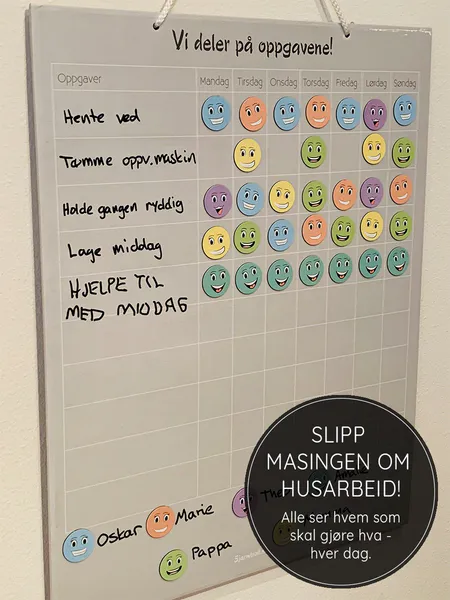 Vi deler på oppgavene!
Oppgaver Mandag Tirsdag Onsdag Torsdag Fredag Lørdag Søndag
Hente ved
Tømme oppv.maskin
Holde gangen ryddig
Lage middag
HJELPE TIL
MED MIDDAG
SLIPP
MASINGEN OM
HUSARBEID!
Alle ser hvem som
skal gjøre hva -
hver dag.
Oskar Marie
Pappa